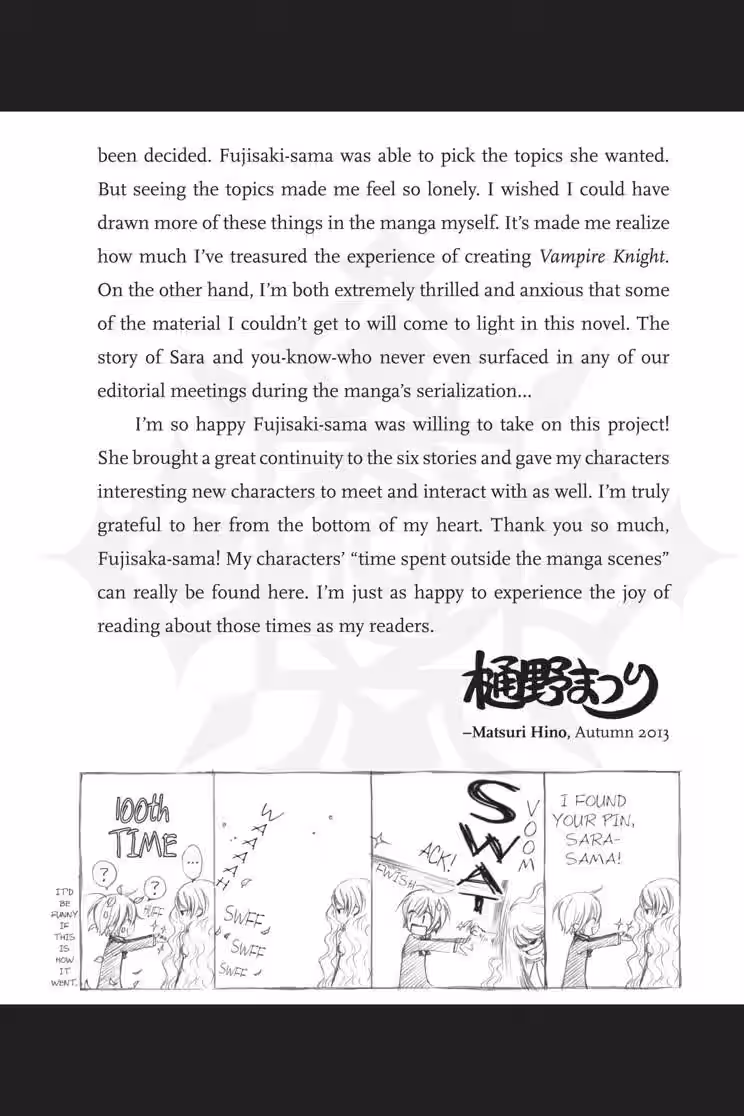 been decided. Fujisaki-sama was able to pick the topics she wanted.
But seeing the topics made me feel so lonely. I wished I could have
drawn more of these things in the manga myself. It’s made me realize
how much I’ve treasured the experience of creating Vampire Knight.
On the other hand, I’m both extremely thrilled and anxious that some
of the material I couldn’t get to will come to light in this novel. The
story of Sara and you-know-who never even surfaced in any of our
editorial meetings during the manga’s serialization...
I’m so happy Fujisaki-sama was willing to take on this project!
She brought a great continuity to the six stories and gave my characters
interesting new characters to meet and interact with as well. I’m truly
grateful to her from the bottom of my heart. Thank you so much,
Fujisaka-sama! My characters’ “time spent outside the manga scenes”
can really be found here. I’m just as happy to experience the joy of
reading about those times as my readers.
樋野まつり
–Matsuri Hino, Autumn 2013
100th
TIME
...
?
?
HUFF
IT'D
BE
FUNNY
IF
THIS
IS
HOW
IT
WENT.
WAAAAH
SWFF
SWFF
SWFF
ACK!
FWISH
SWAT
VOOM
I FOUND
YOUR PIN,
SARA-
SAMA!